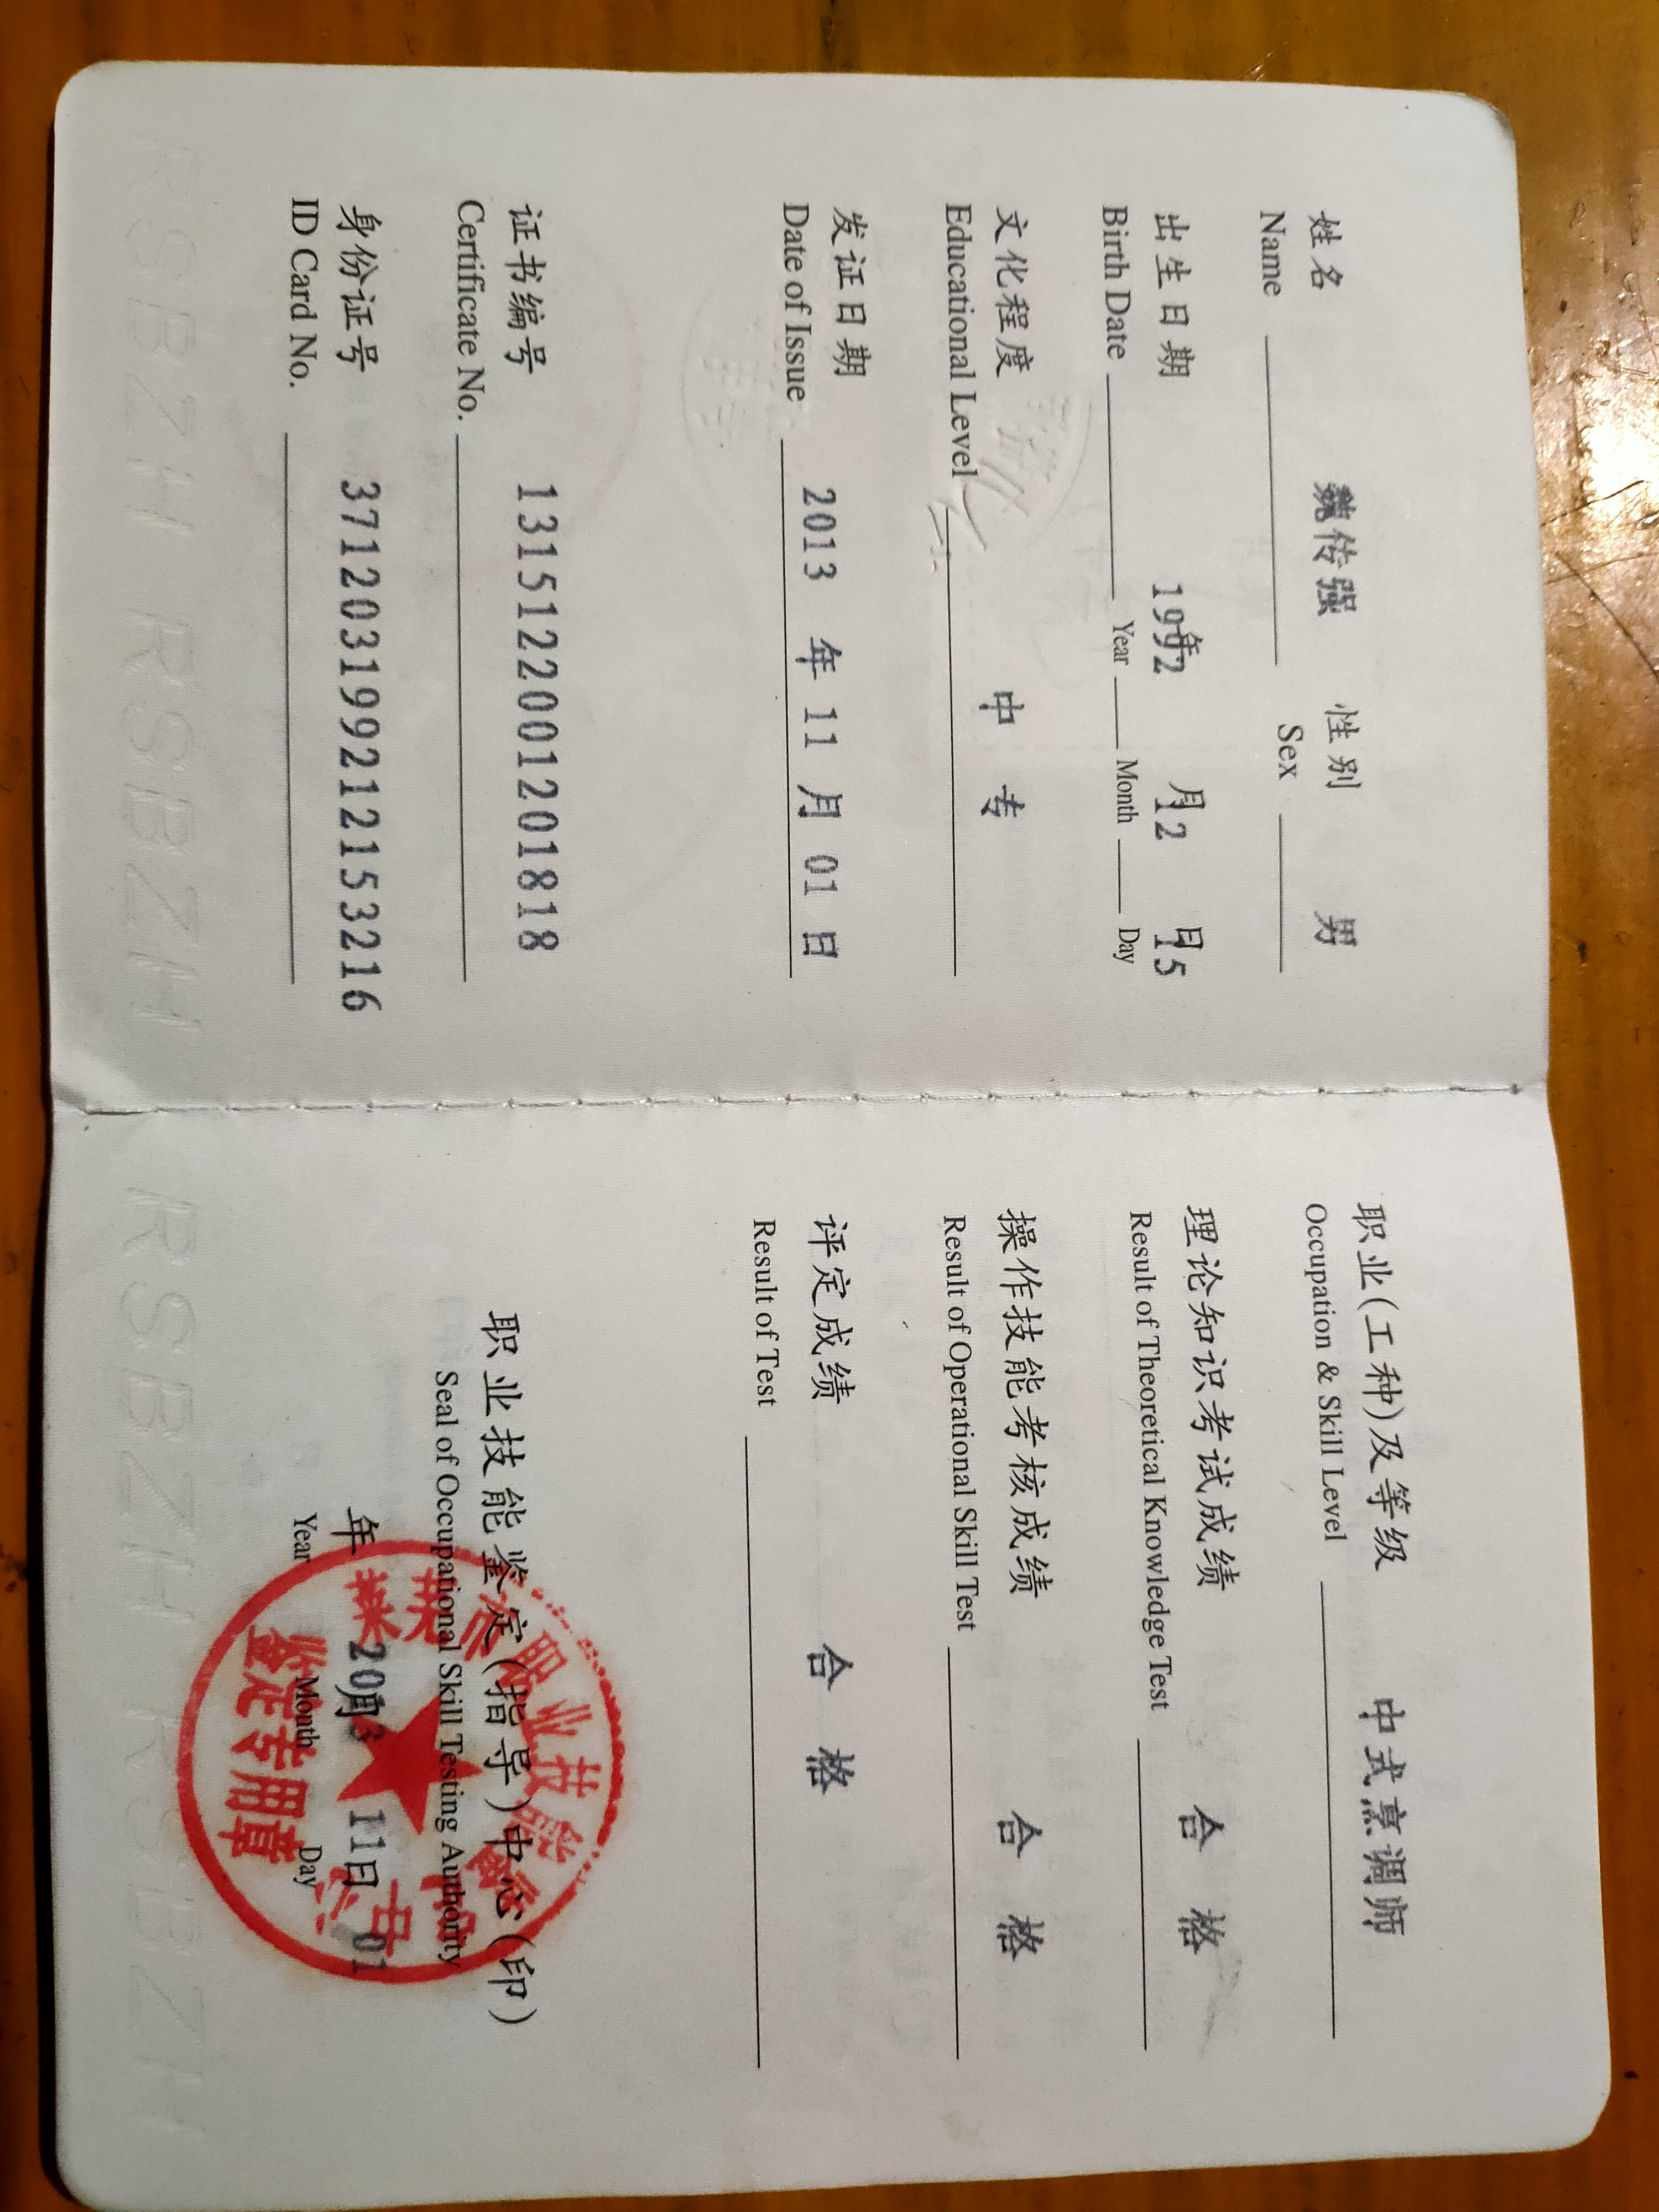 姓名 魏传强 性别 男
Name Sex
出生日期 1992年 12月 15日
Birth Date Year Month Day
文化程度 中 专
Educational Level
发证日期 2013 年 11 月 01 日
Date of Issue
证书编号 1315122001201818
Certificate No.
身份证号 371203199212153216
ID Card No.
RSBZH RSBZH
职业(工种)及等级 中式烹调师
Occupation & Skill Level
理论知识考试成绩 合 格
Result of Theoretical Knowledge Test
操作技能考核成绩 合 格
Result of Operational Skill Test
评定成绩 合 格
Result of Test
职业技能鉴定(指导)中心(印)
Seal of Occupational Skill Testing Authority
年 2013月 11日 01
Year Month Day
莱芜市职业技能鉴定中心
鉴定专用章
RSBZH RSBZH